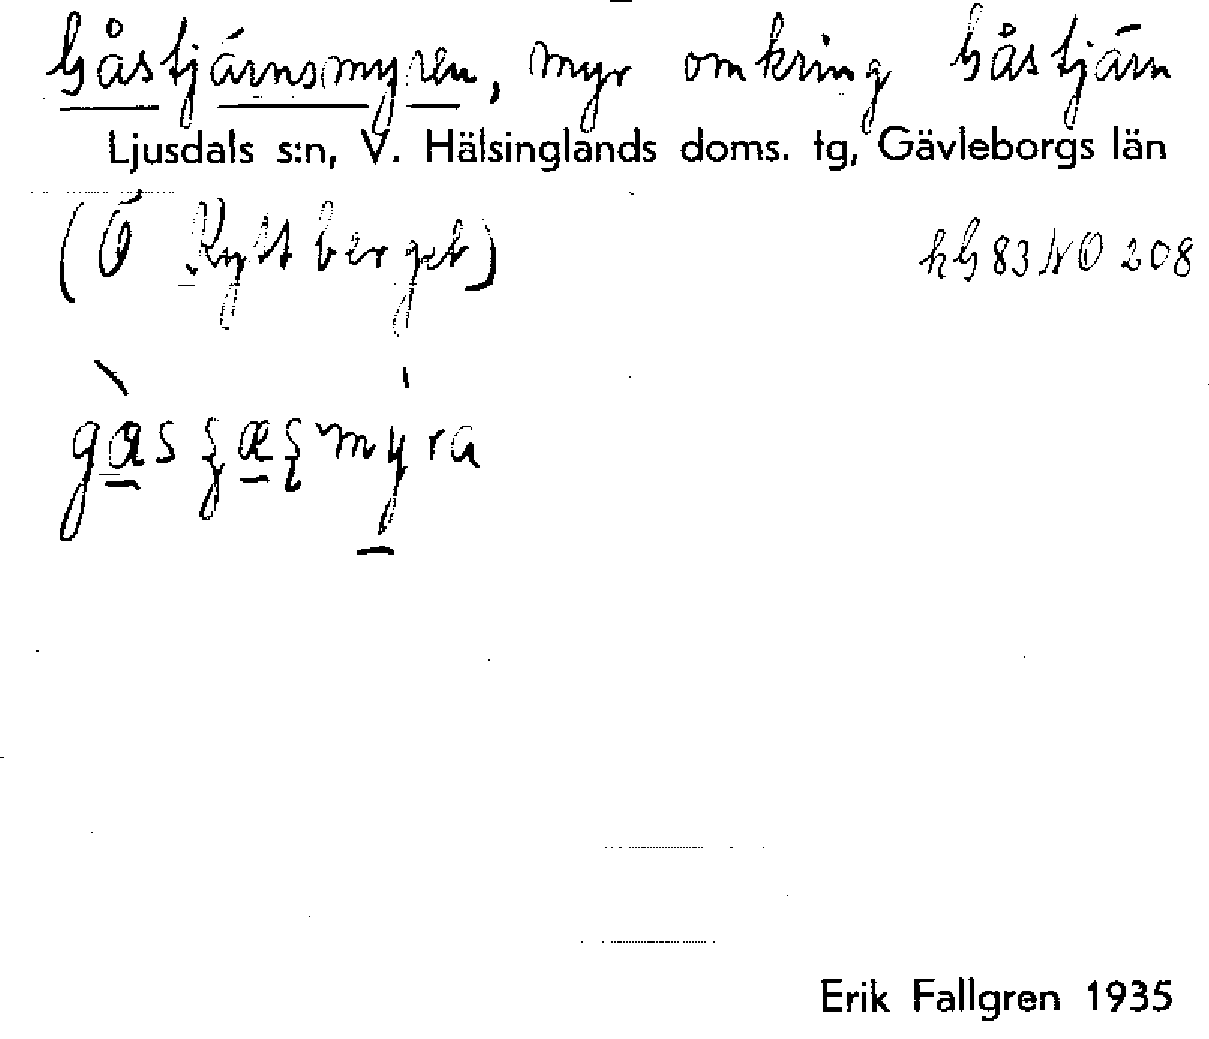 Gåstjärnsmyren, myr omkring Gåstjärn
Ljusdals s:n, V. Hälsinglands doms. tg, Gävleborgs län
(Ö Kyttberget)
hG 83 NO 208
Erik Fallgren 1935